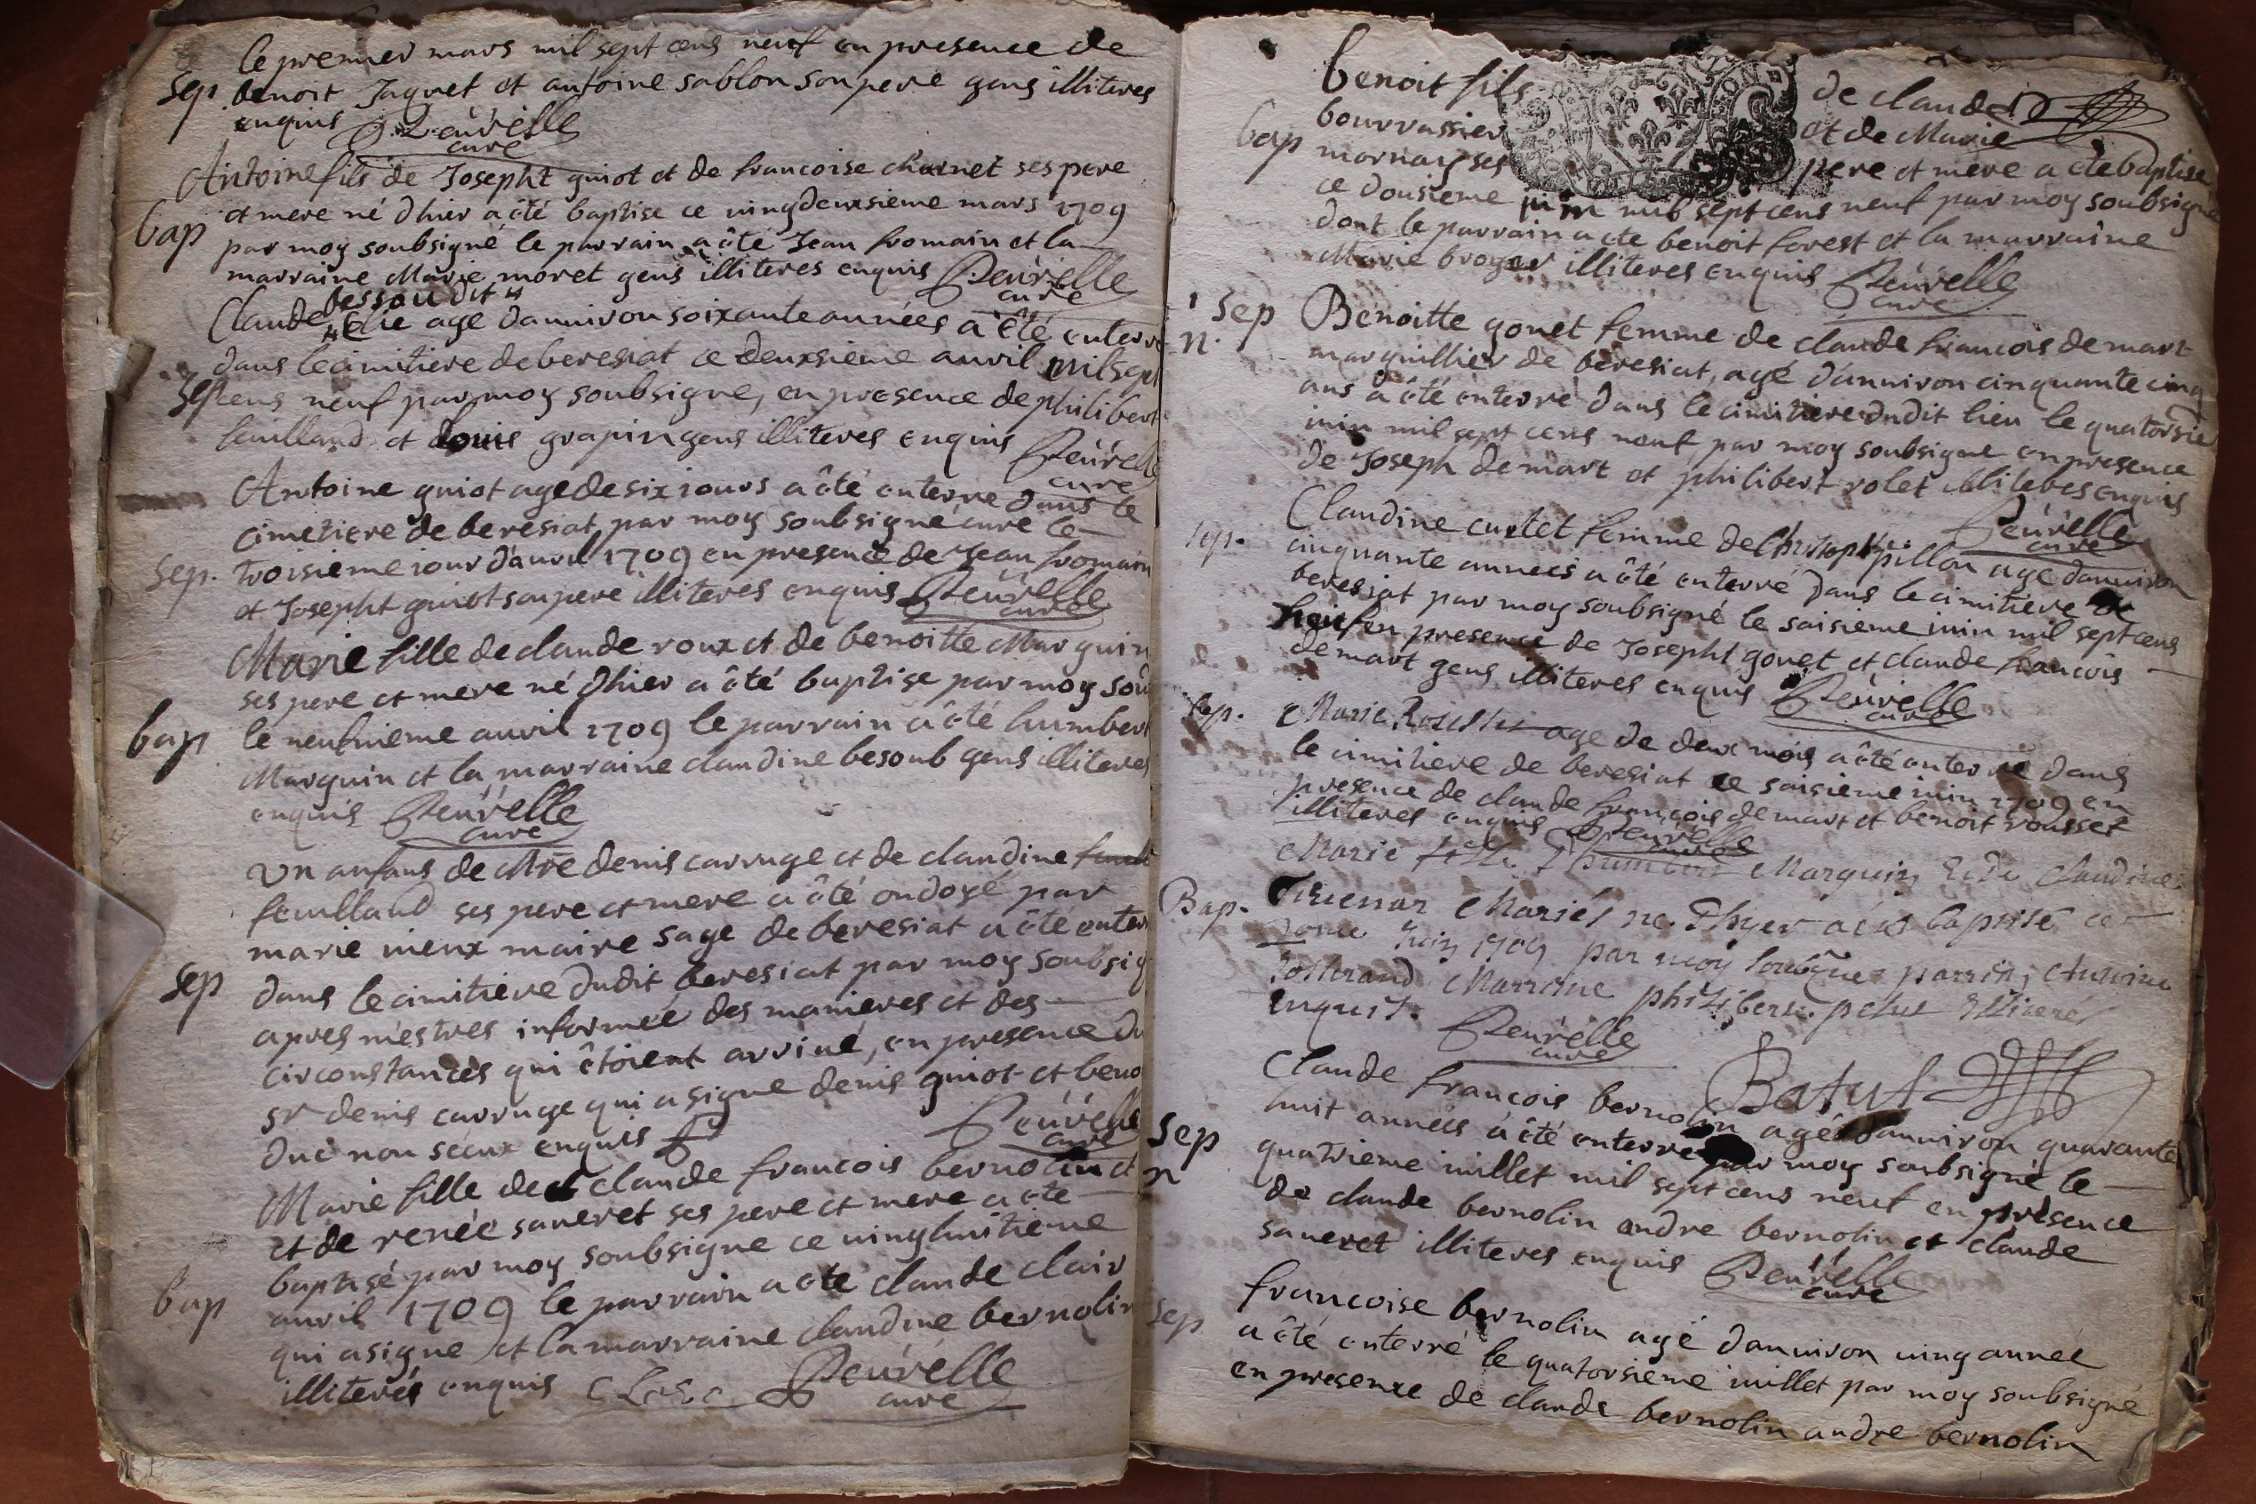 le premier mars mil sept cens neuf en presence de
Sep benoit Jaquet et antoine sablon son pere gens illiteres
enquis Reúrelle
curé
Antoine fils de Josepht guiot et de francoise charnet ses pere
et mere né dhier a ôté baptise ce vingdeuxsieme mars 1709
bap
par moy soubsigné le parrain a ôté Jean fromain et la
marraine Marie moret gens illiteres enquis Reúrelle
curé
bessou dit
Claude Elie age danniron soixante années a ôté enterre
dans le cimitiere de beresiat ce deuxsieme auril mil sept
Sep cens neuf par moy soubsigne, en presence de philibert
feuilland et louis grapin gens illiteres enquis Reúrelle
curé
Antoine guiot age de six iours a ôté enterre dans le
cimetiere de beresiat par moy soubsigné curé le
Sep. troisieme iour d'auril 1709 en presence de Jean fromain
et Josepht guiot son pere illiteres enquis Reúrelle
curé
Marie fille de claude roux et de benoitte Marguin
ses pere et mere né dhier a ôté baptise par moy sou
bap le neufuieme auril 1709 le parrain a ôté humbert
Marguin et la marraine claudine besoub gens illiteres
enquis Reúrelle
curé
Un anfans de Mre denis carruge et de claudine
feuilland ses pere et mere a ôté ondoyé par
marie vieux maire sage de beresiat a ôté enter
Sep dans le cimitiere dudit beresiat par moy soubsig
apres mestres informée des manieres et des
circonstances qui êtoient arriué, en presence du
sr denis carruge qui a signe denis guiot et beno
duc non sceux enquis Reúrelle
curé
Marie fille de claude francois bernolin et
et de renée saueret ses pere et mere a ôté
baptisé par moy soubsigne ce vinghuitieme
bap auril 1709 le parrain a ôté claude clair
qui a signe et la marraine claudine bernolin
illiterés enquis Reúrelle
curé
benoit fils de claude
bourrassier et de Marie
bap mornay ses pere et mere a ôté baptise
ce dousieme iuin mil sept cens neuf par moy soubsigne
dont le parrain a ôté benoit forest et la marraine
Marie broyer illiteres enquis Reúrelle
curé
Sep Benoitte gonet femme de claude francois demart
n. marguillier de beresiat, agé d'anniron cinquante cinq
ans a ôté enterré dans le cimitiere dudit lieu le quatorsie
iuin mil sept cens neuf par moy soubsigne en presence
de Joseph demart et philibert rolet illiteres enquis
Reúrelle
curé
Sep. Claudine curtet femme de Christophe pillon age danniron
cinquante années a ôté enterré dans le cimitiere de
beresiat par moy soubsigné le saisieme iuin mil sept cens
neuf en presence de Josepht gonet et claude francois
demart gens illiteres enquis Reúrelle
curé
Sep. Marie age de deux mois a ôté enterrié dans
le cimitiere de beresiat ce saisieme iuin 1709 en
presence de claude françois demart et benoit rousset
illiteres enquis Reúrelle
curé
Marie fille Dhumbert Marguin Et de Claudine
Bap. Mariés ne Dhyer a été baptisé ce
Juin 1709 par moy soubsigné parrin Antoine
Marraine philiberte
enquis. Reúrelle
curé
Batut
Claude francois bernolin agé danniron quarante
huit années a ôté enterre par moy soubsigné le
Sep quatrieme iuillet mil sept cens neuf en présence
n de claude bernolin andre bernolin et claude
saueret illiteres enquis Reúrelle
curé
Sep francoise bernolin agé danniron uing année
a ôté enterré le quatorsieme iuillet par moy soubsigné
en presence de claude bernolin andre bernolin